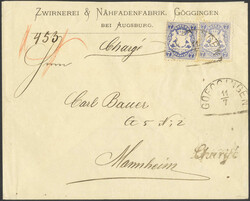 ZWIRNEREI & NÄHFADENFABRIK, GÖGGINGEN
BEI AUGSBURG.
455
Chargé
Herrn
Carl Bauer
Mannheim
GOEGGINGEN
11
Chargé